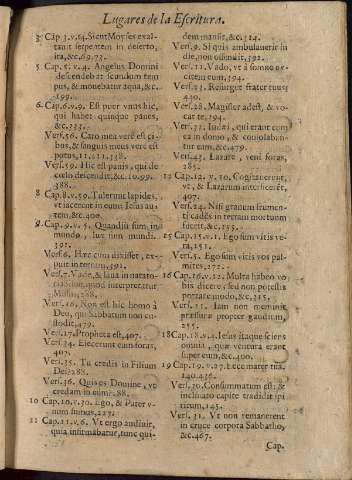 Lugares de la Escritura.
3 Cap. 3. v. 14. Sicut Moyses exal-
tauit serpentem in deserto,
ita, &c. 69. 73.
5 Cap. 5. v. 4. Angelus Domini
descendebat secundum tem
pus, & mouebatur aqua, &c.
199.
6. Cap. 6. v. 9. Est puer vnus hic,
qui habet quinque panes,
&c. 353.
Vers. 56. Caro mea verè est ci-
bus, & sanguis meus verè est
potus,
Vers. 59. Hic est panis, qui de
cœlo descendit; &c. 10. 99.
388.
8 Cap. 8. v. 59. Tulerunt lapides,
vt iacerent in eum: Iesus au-
tem, &c. 400.
9. Cap. 9. v. 5. Quandiu sum in
mundo, lux sum mundi.
391.
Vers. 6. Hæc cum dixisset, ex-
puit in terram, 391.
Vers. 7. Vade, & laua in natato-
ria Siloe, quod interpretatur
Missus, 288.
Vers. 16. Non est hic homo à
Deo, qui Sabbatum non cu-
stodit, 479.
Vers. 17. Propheta est, 407.
Vers. 34. Eiecerunt eum foras,
407.
Vers. 35. Tu credis in Filium
Dei? 288.
Vers. 36. Quis es Domine, vt
credam in eum? 288.
10 Cap. 10. v. 30. Ego, & Pater v-
num sumus, 227.
11 Cap. 11. v. 6. Vt ergo audiuit,
quia infirmabatur, tunc qui-
dem mansit, &c. 314.
Vers. 9. Si quis ambulauerit in
die, non offendit, 391.
Vers. 11. Vado, vt à somno ex-
citem eum, 394.
Vers. 23. Resurget frater tuus,
430.
Vers. 28. Magister adest, & vo-
cat te, 394.
Vers. 31. Iudæi, qui erant cum
ea in domo, & consolaban-
tur eam, &c. 479.
Vers. 43. Lazare, veni foras,
285.
12 Cap. 12. v. 10. Cogitauerunt,
vt, & Lazarum interficerẽt,
407.
Vers. 24. Nisi granum frumen-
ti cadẽs in terram mortuum
fuerit, &c. 255.
15 Cap. 15. v. 1. Ego sum vitis ve-
ra, 151.
Vers. 5. Ego sum vitis vos pal-
mites, 272.
16 Cap. 16. v. 12. Multa habeo vo-
bis dicere, sed non potestis
portare modo, &c. 315.
Vers. 21. Iam non meminit
præssuræ propter gaudium,
255.
18 Cap. 18. v. 4. Iesus itaque sciens
omnia, quæ ventura erant
super eum, &c. 400.
19 Cap. 19. v. 27. Ecce mater tua,
140. 436.
Vers. 30. Consummatum est: &
inclinato capite tradidit spi
ritum, 145.
Vers. 31. Vt non remanerent
in cruce corpora Sabbatho,
&c. 467.
Cap.